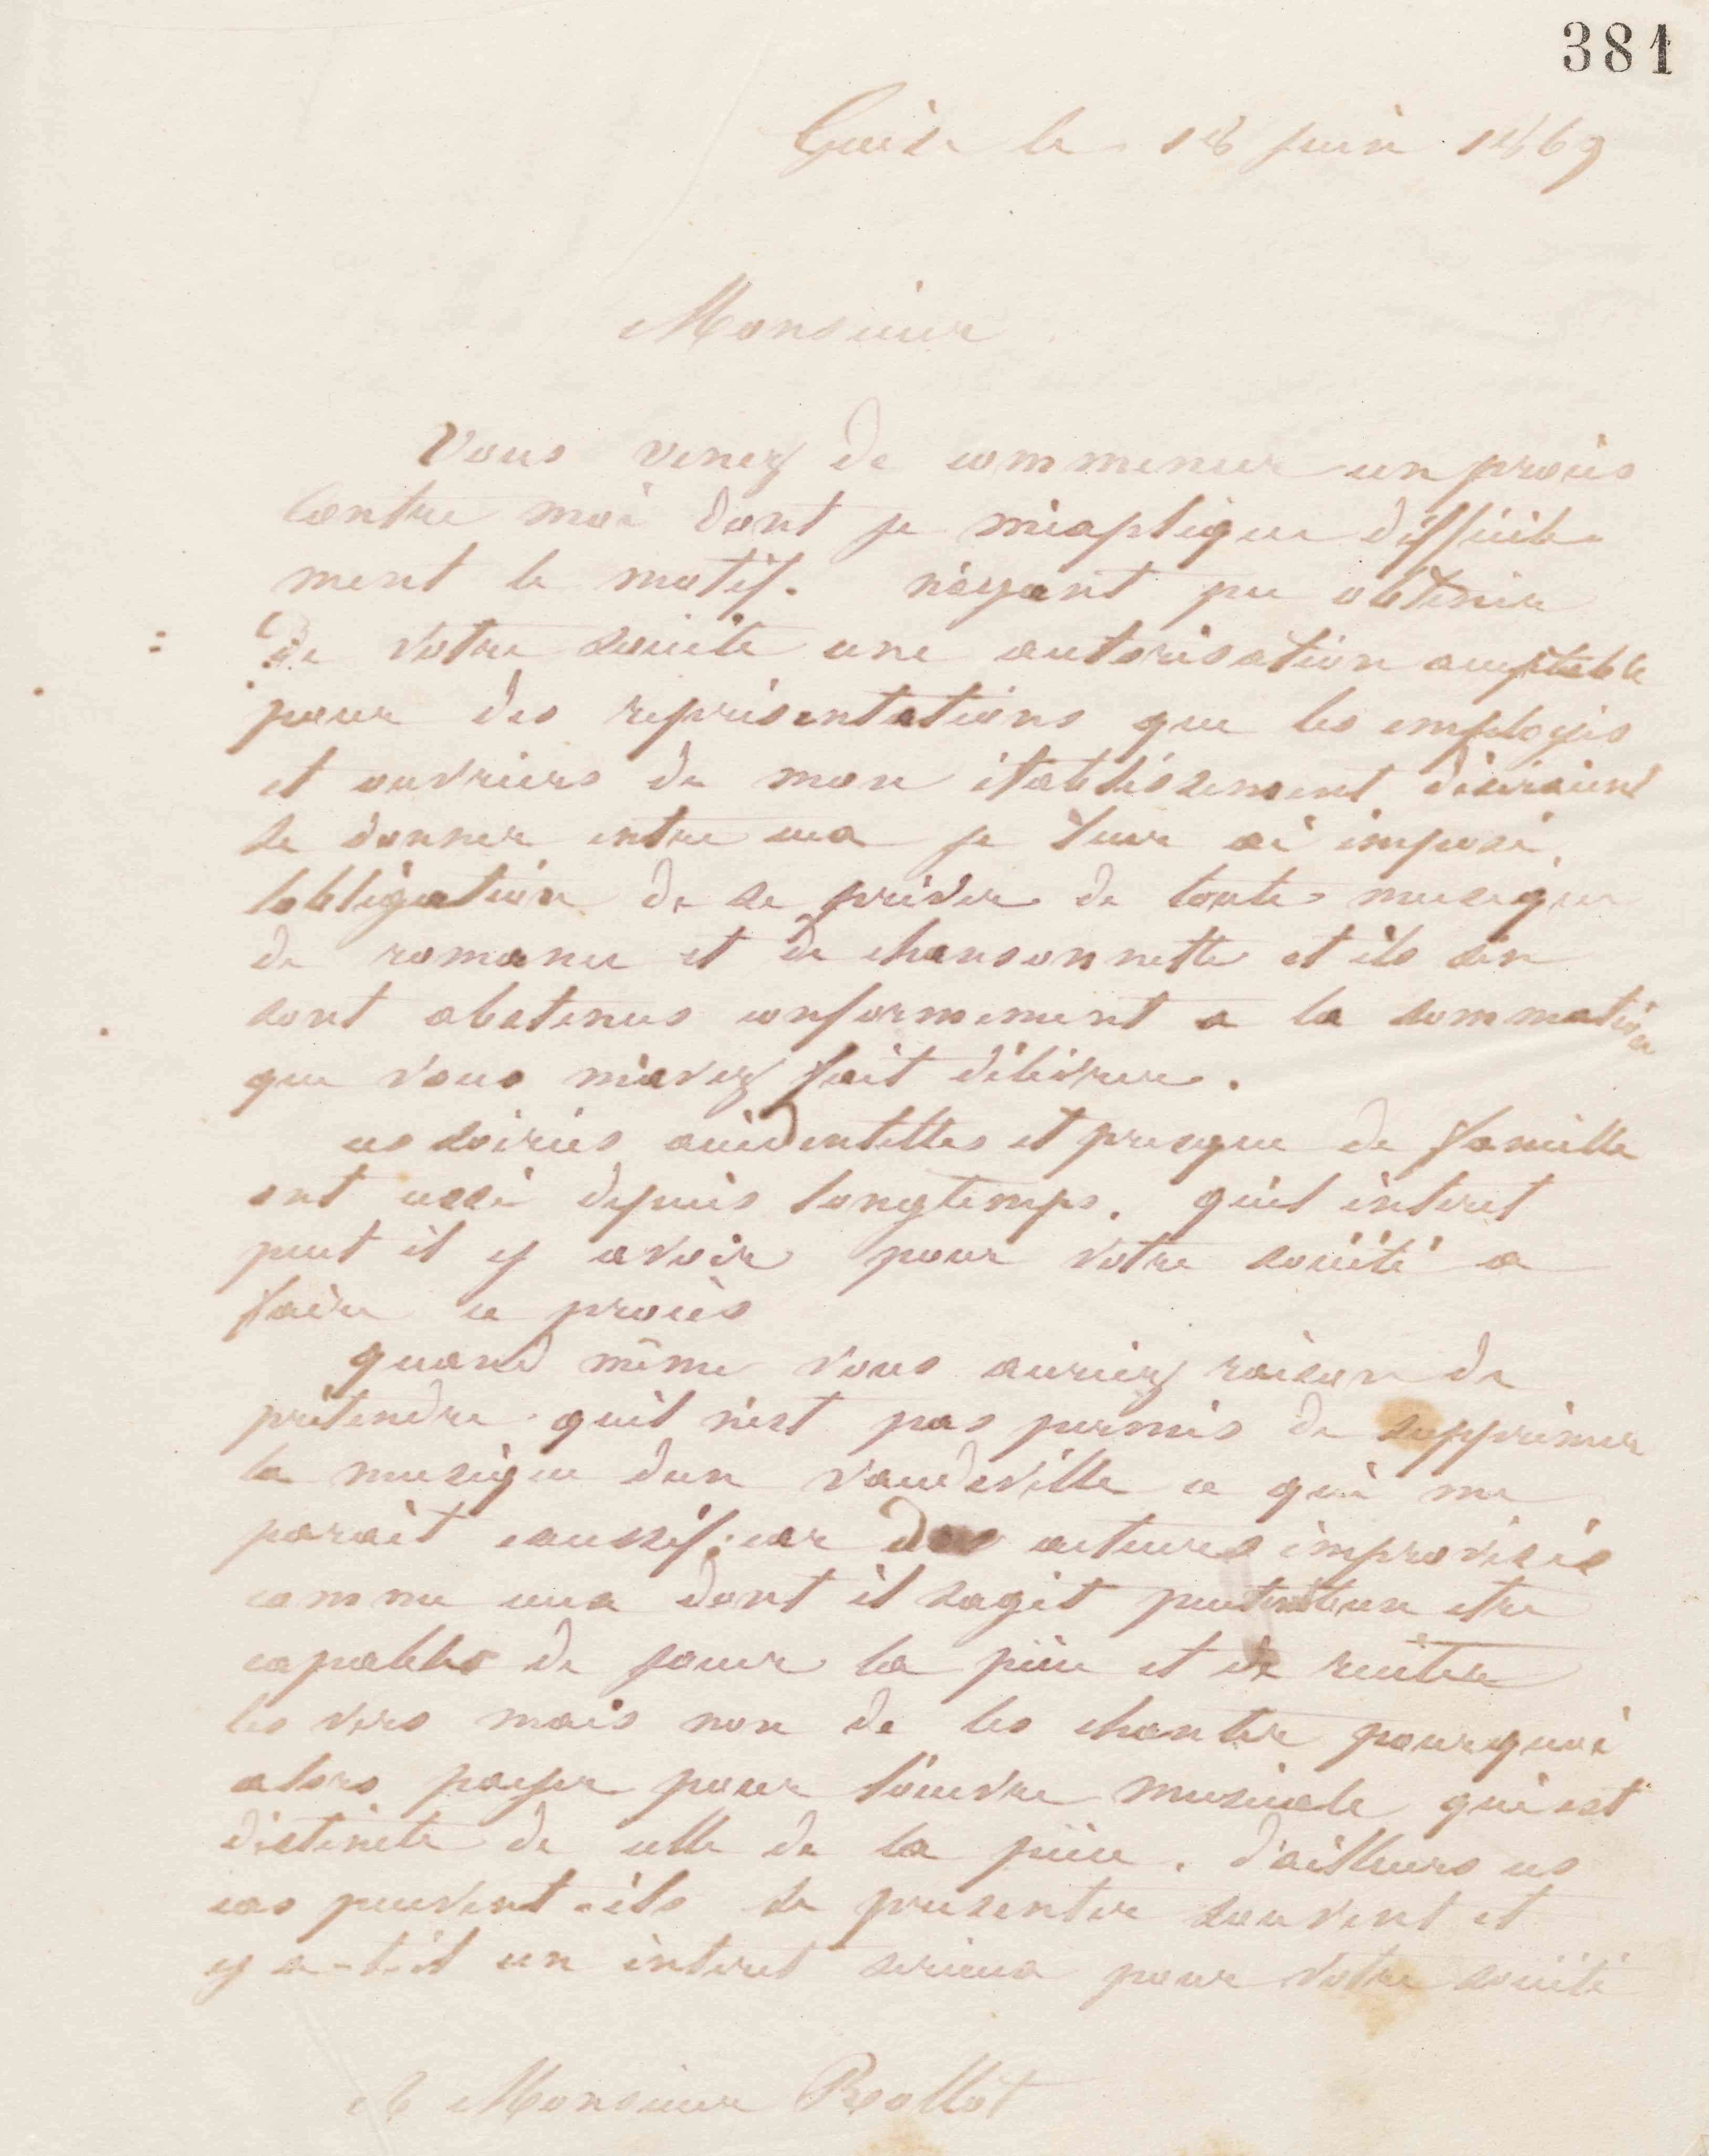 381
Guise le 18 juin 1869
Monsieur
Vous venez de commencer un procès
contre moi dont je m'explique difficile
ment le motif. n'ayant pu obtenir
de votre société une autorisation acceptable
pour des représentations que les employés
et ouvriers de mon établissement désiraient
se donner entre eux je leur ai imposé
lobligation de se priver de toute musique
de romance et de chansonnette et ils s'en
sont abstenus conformement a la sommation
que vous m'avez fait délivrer.
ces soirées accidentelles et presque de famille
ont cessé depuis longtemps. quel interet
peut il y avoir pour votre société a
faire ce procès
quand même vous auriez raison de
prétendre quil n'est pas permis de supprimer
la musique dun vaudeville ce qui me
parait excessif. car des acteurs improvisés
comme ceux dont il sagit peuvent etre
capables de jouer la pièce et de réciter
les vers mais non de les chanter pourquoi
alors payer pour l'œuvre musicale qui est
distincte de celle de la pièce. d'ailleurs ces
cas peuvent-ils se presenter souvent et
y a-t-il un interet serieux pour votre société
A Monsieur Rollot